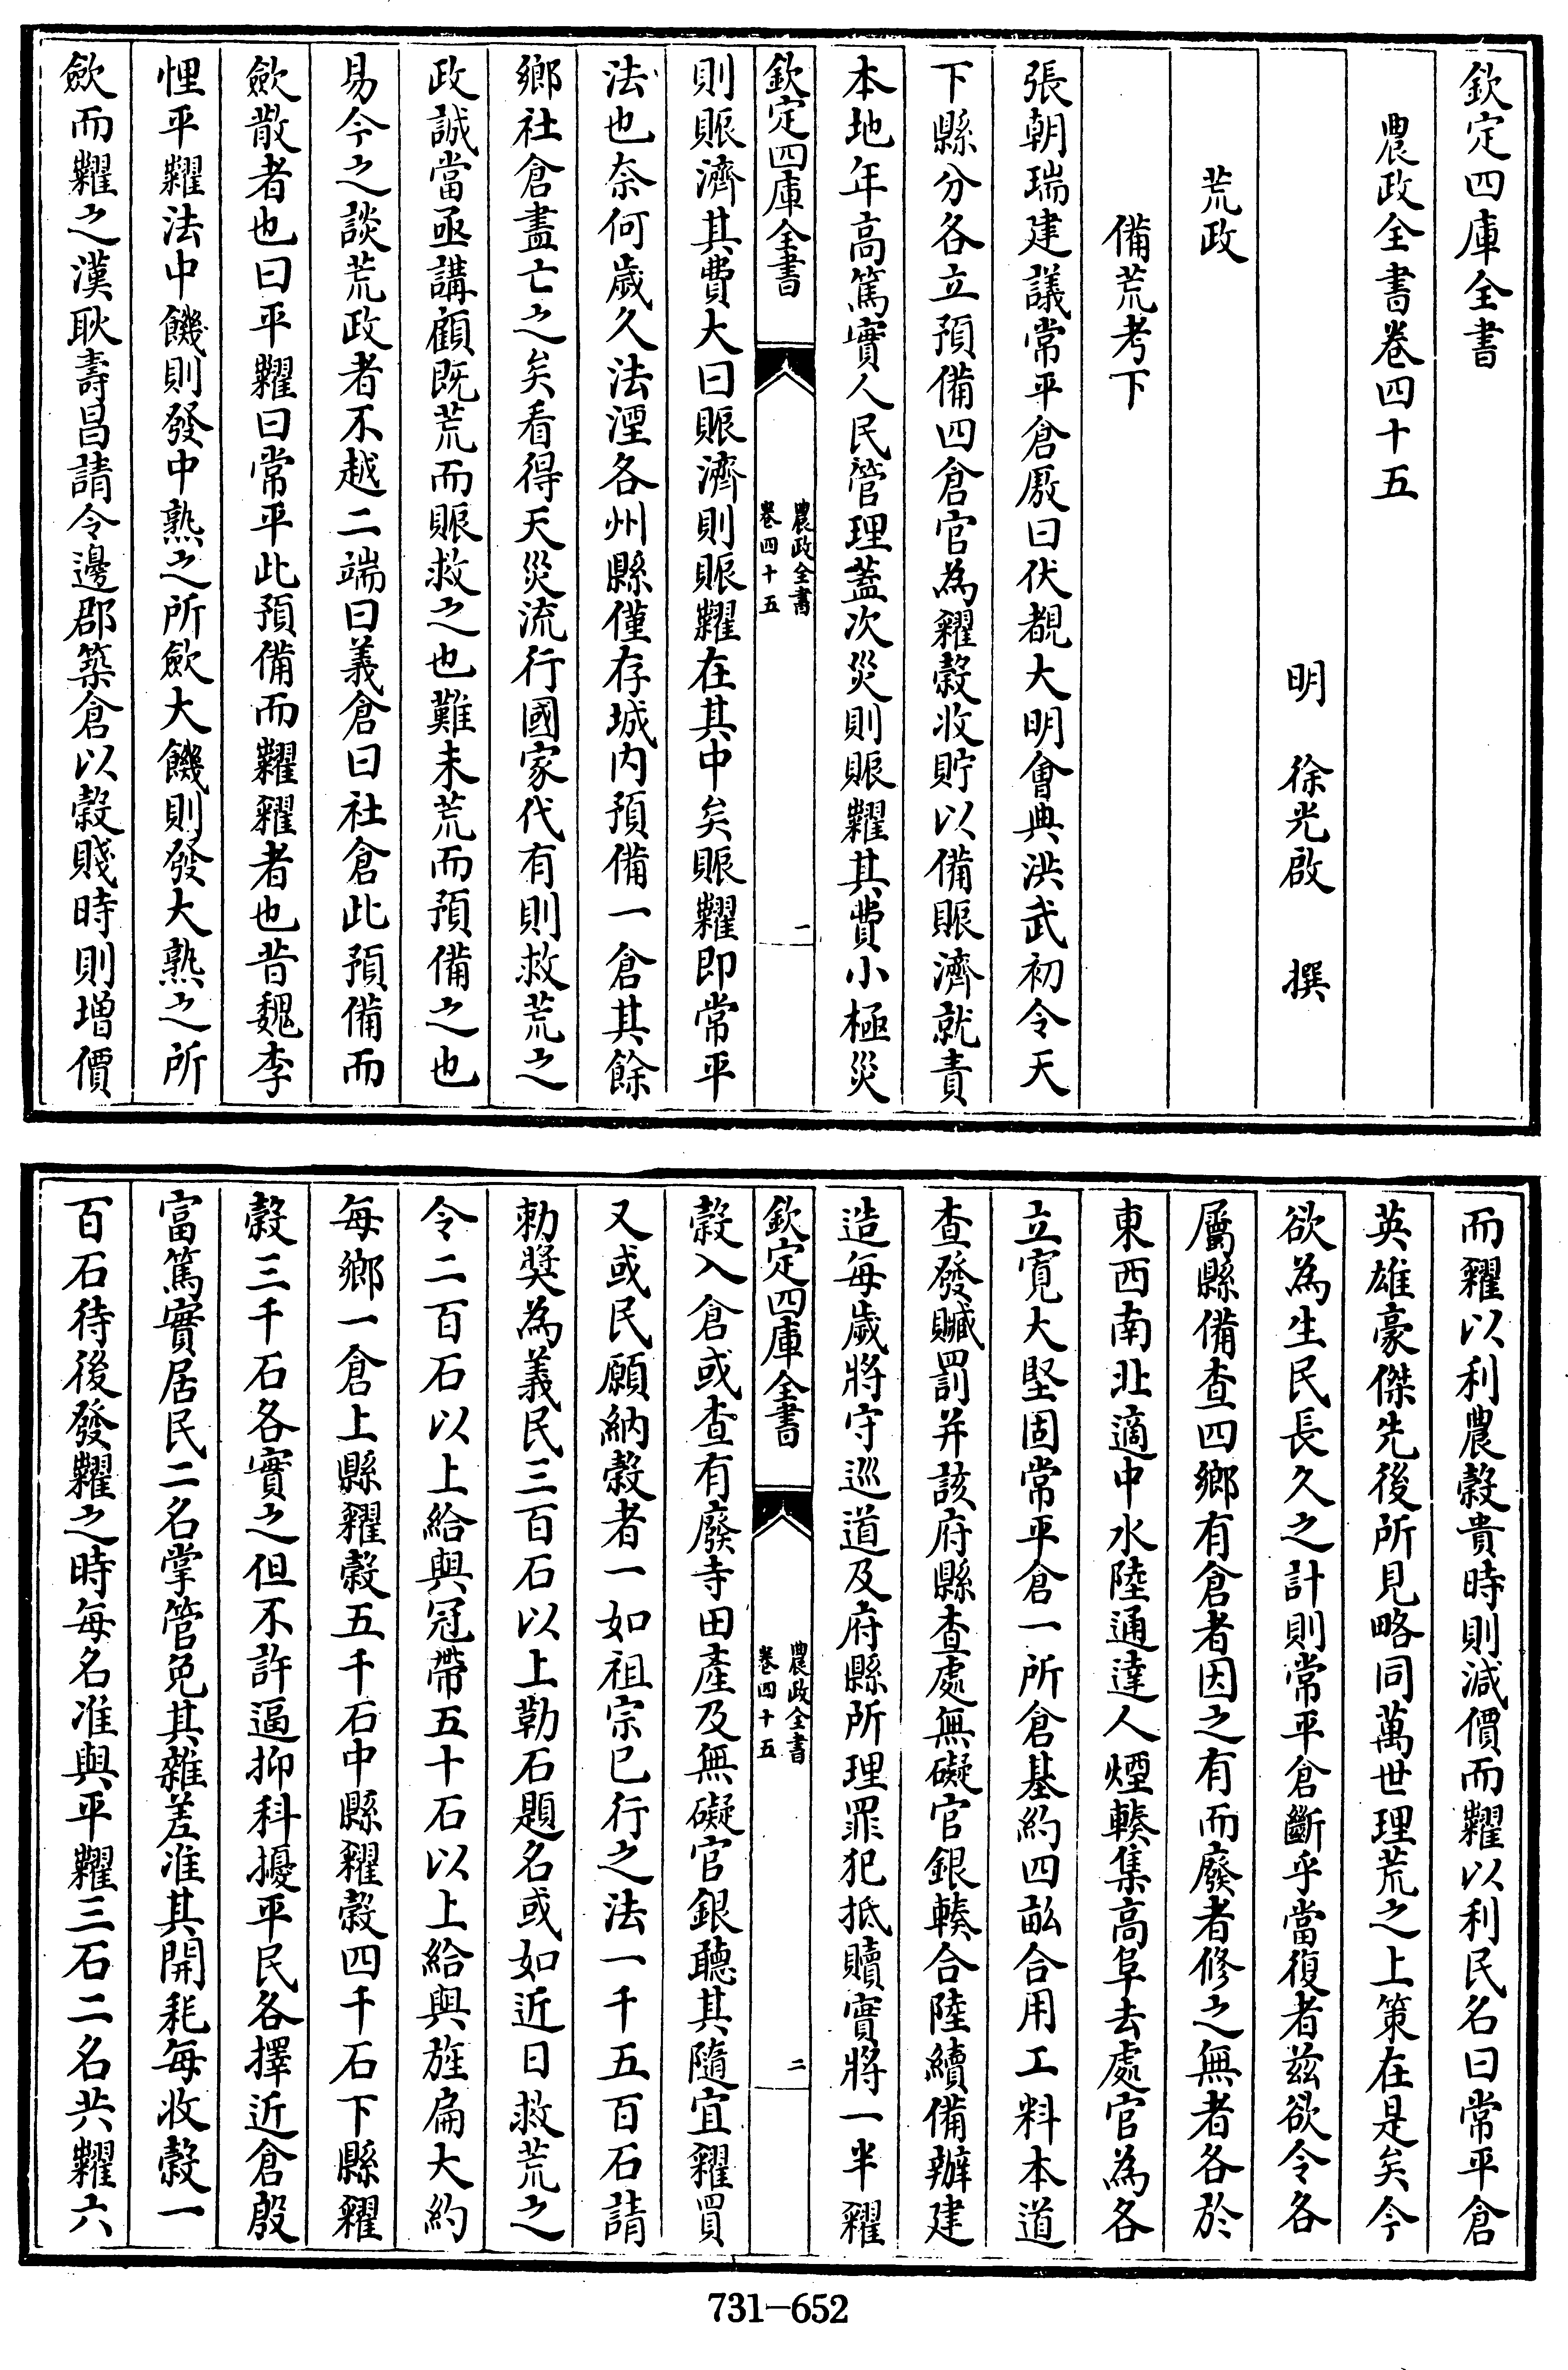 欽定四庫全書
農政全書卷四十五
明　徐光啟　撰
荒政
備荒考下
張朝瑞建議常平倉厫曰伏覩大明會典洪武初令天
下縣分各立預備四倉官為糴穀收貯以備賑濟就責
本地年高篤實人民管理蓋次災則賑糶其費小極災
欽定四庫全書
農政全書
卷四十五
一
則賑濟其費大曰賑濟則賑糶在其中矣賑糶即常平
法也奈何歲久法湮各州縣僅存城内預備一倉其餘
鄉社倉盡亡之矣看得天災流行國家代有則救荒之
政誠當亟講顧既荒而賑救之也難未荒而預備之也
易今之談荒政者不越二端曰義倉曰社倉此預備而
斂散者也曰平糶曰常平此預備而糶糴者也昔魏李
悝平糶法中饑則發中熟之所斂大饑則發大熟之所
斂而糶之漢耿壽昌請令邊郡築倉以穀賤時則增價
而糴以利農穀貴時則減價而糶以利民名曰常平倉
英雄豪傑先後所見略同萬世理荒之上策在是矣今
欲為生民長久之計則常平倉斷乎當復者兹欲令各
屬縣備查四鄉有倉者因之有而廢者修之無者各於
東西南北適中水陸通達人煙輳集高阜去處官為各
立寛大堅固常平倉一所倉基約四畝合用工料本道
查發贓罰并該府縣查處無礙官銀輳合陸續備辦建
造每歲將守巡道及府縣所理罪犯抵贖實將一半糴
欽定四庫全書
農政全書
卷四十五
二
穀入倉或查有廢寺田產及無礙官銀聽其隨宜糴買
又或民願納穀者一如祖宗已行之法一千五百石請
勅奬為義民三百石以上勒石題名或如近日救荒之
令二百石以上給與冠帶五十石以上給與旌扁大約
每鄉一倉上縣糴穀五千石中縣糴穀四千石下縣糴
穀三千石各實之但不許逼抑科擾平民各擇近倉殷
富篤實居民二名掌管免其雜差准其開耗每收穀一
百石待後發糶之時每名准與平糶三石二名共糶六
731-652